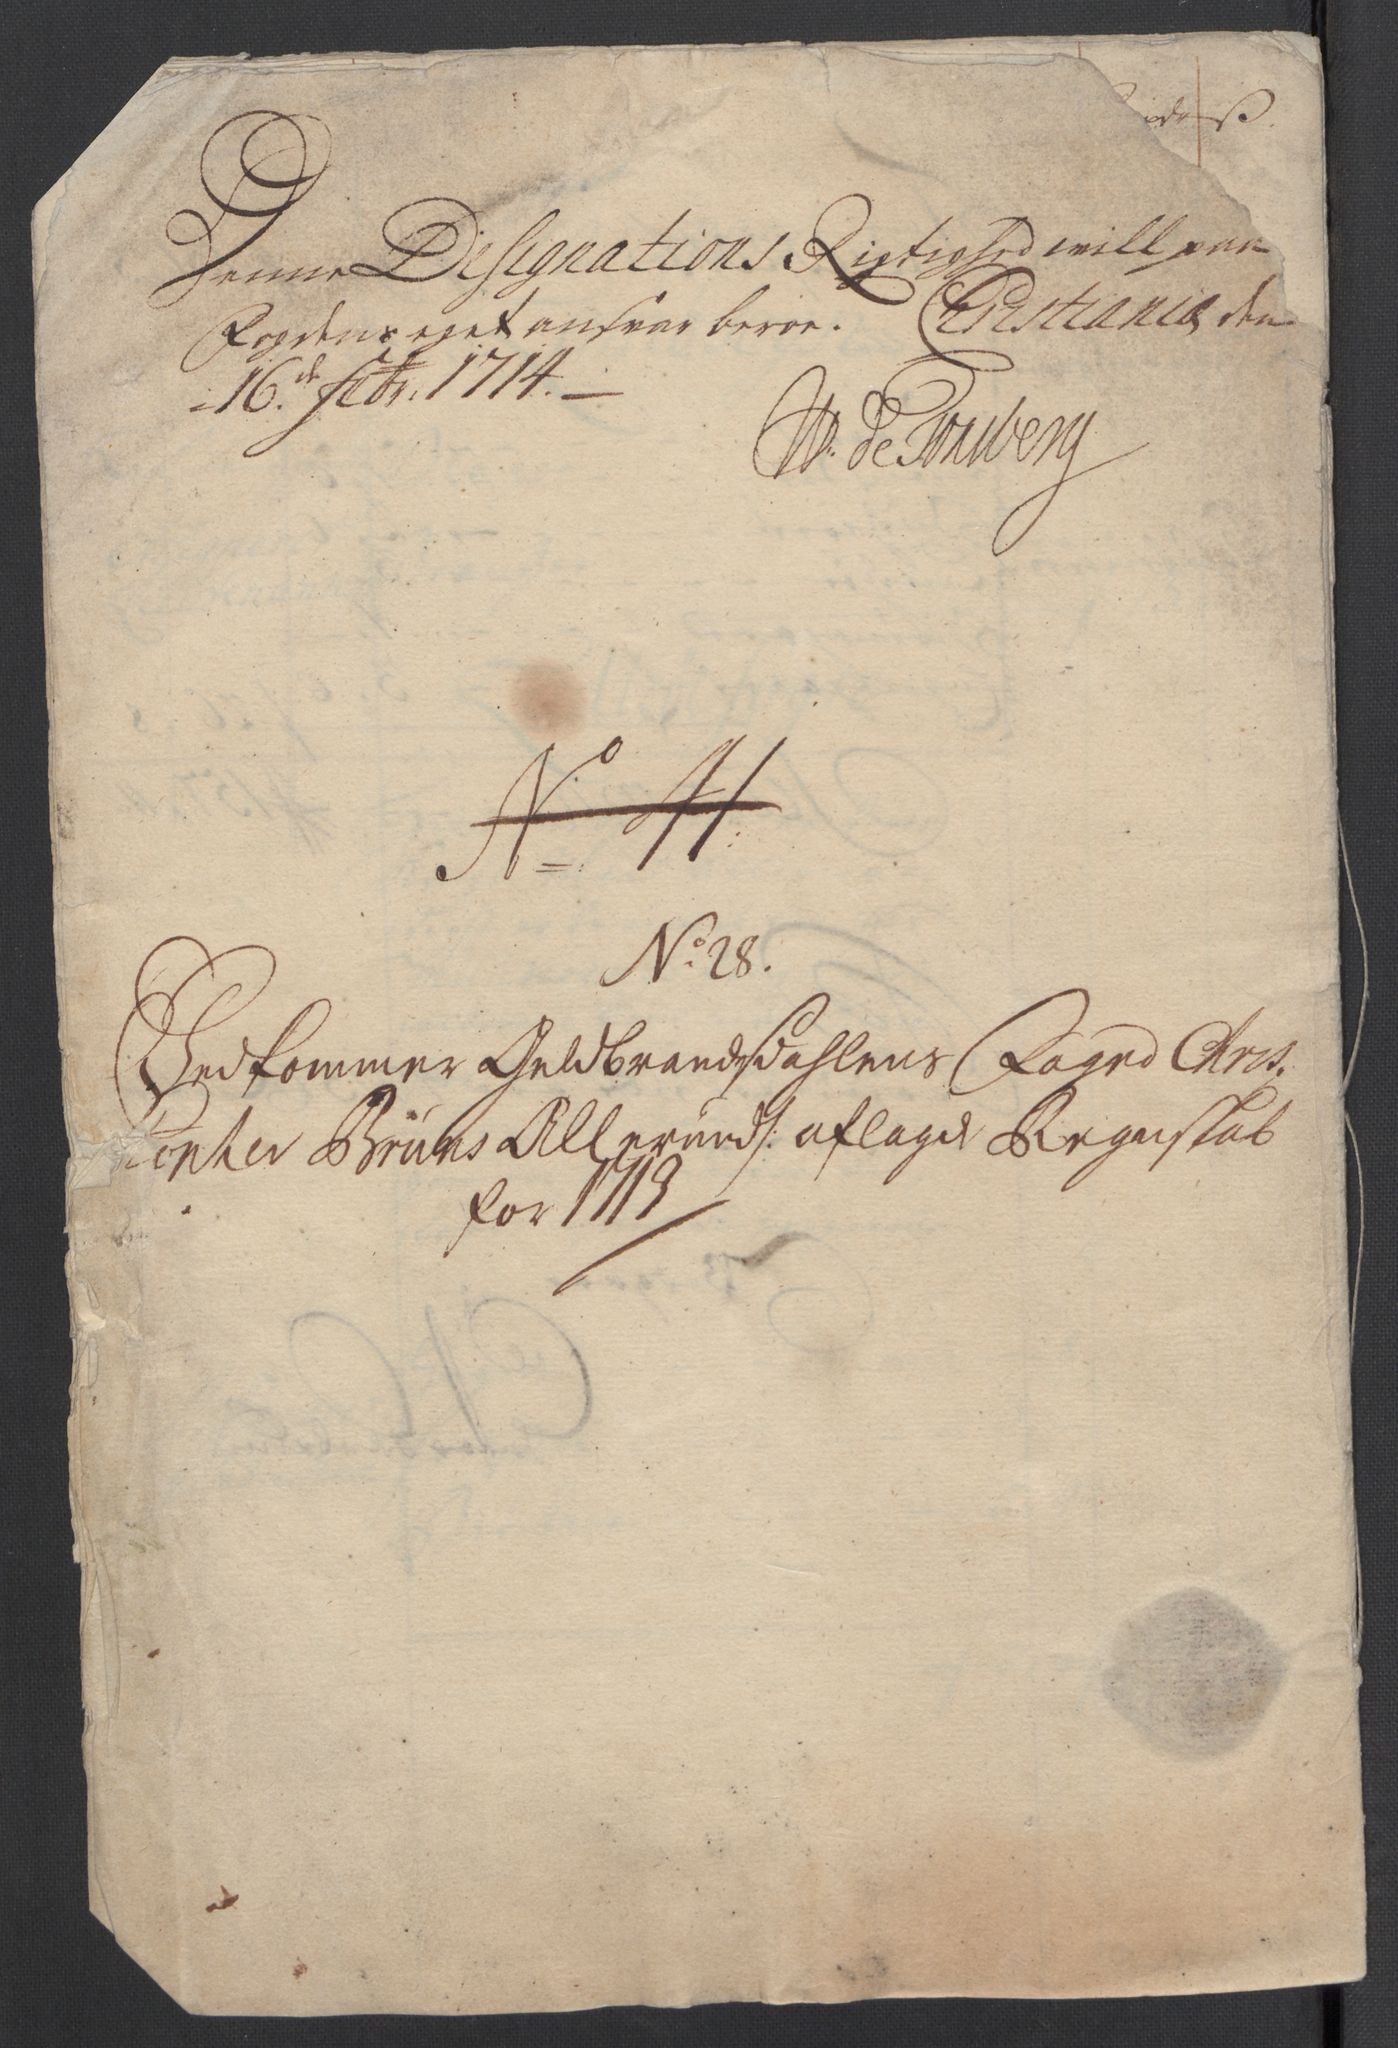 Denne Designations Rigtighed will paa
Fogdens eget ansvar beroe. Christiania den
16.de Febr: 1714.
W. de Tonsberg
No 41
No: 28.
Vedkommer Guldbrandsdahlens Foged Chris-
topher Bruns Allerund: aflagde Regenskab
for 1713